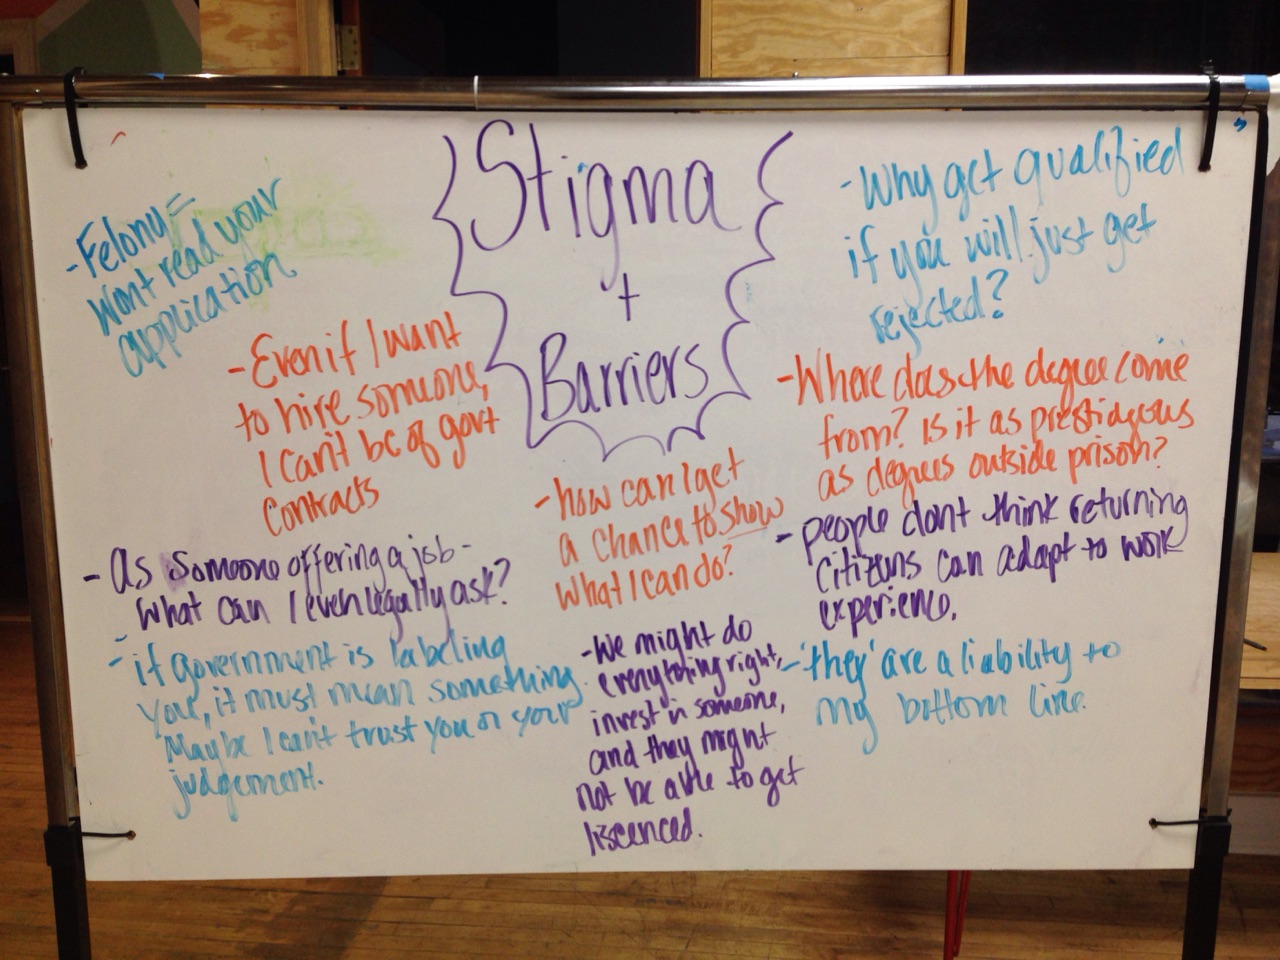 Stigma
+
Barriers
- Felony =
Wont read your
application
- Even if I want
to hire someone,
I can't be of govt
contracts
- As someone offering a job -
what can I even legally ask?
- if government is labeling
you, it must mean something.
Maybe I can't trust you or your
judgement.
- how can I get
a chance to show
what I can do?
- We might do
everything right,
invest in someone,
and they might
not be able to get
liscenced.
- Why get qualified
if you will just get
rejected?
- Where does the degree come
from? Is it as prestidgeous
as degrees outside prison?
- people dont think returning
citizens can adapt to work
experience.
- 'they' are a liability to
my bottom line.